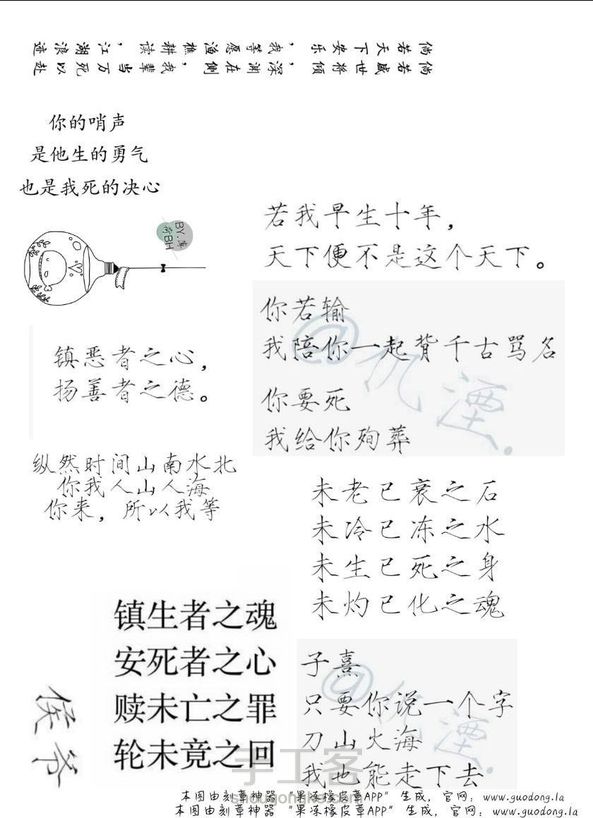 倘若天下安乐，我等愿渔樵耕读，江湖浪迹
倘若盛世将倾，深渊在侧，我辈当万死以赴
你的哨声
是他生的勇气
也是我死的决心
若我早生十年，
天下便不是这个天下。
你若输
我陪你一起背千古骂名
你要死
我给你殉葬
镇恶者之心，
扬善者之德。
纵然时间山南水北
你我人山人海
你来，所以我等
未老已衰之石
未冷已冻之水
未生已死之身
未灼已化之魂
镇生者之魂
安死者之心
赎未亡之罪
轮未竟之回
侯爷
子熹
只要你说一个字
刀山火海
我也能走下去
手工客
本图由刻章神器 "果冻橡皮章APP" 生成，官网：www.guodong.la
本图由刻章神器 "果冻橡皮章APP" 生成，官网：www.guodong.la